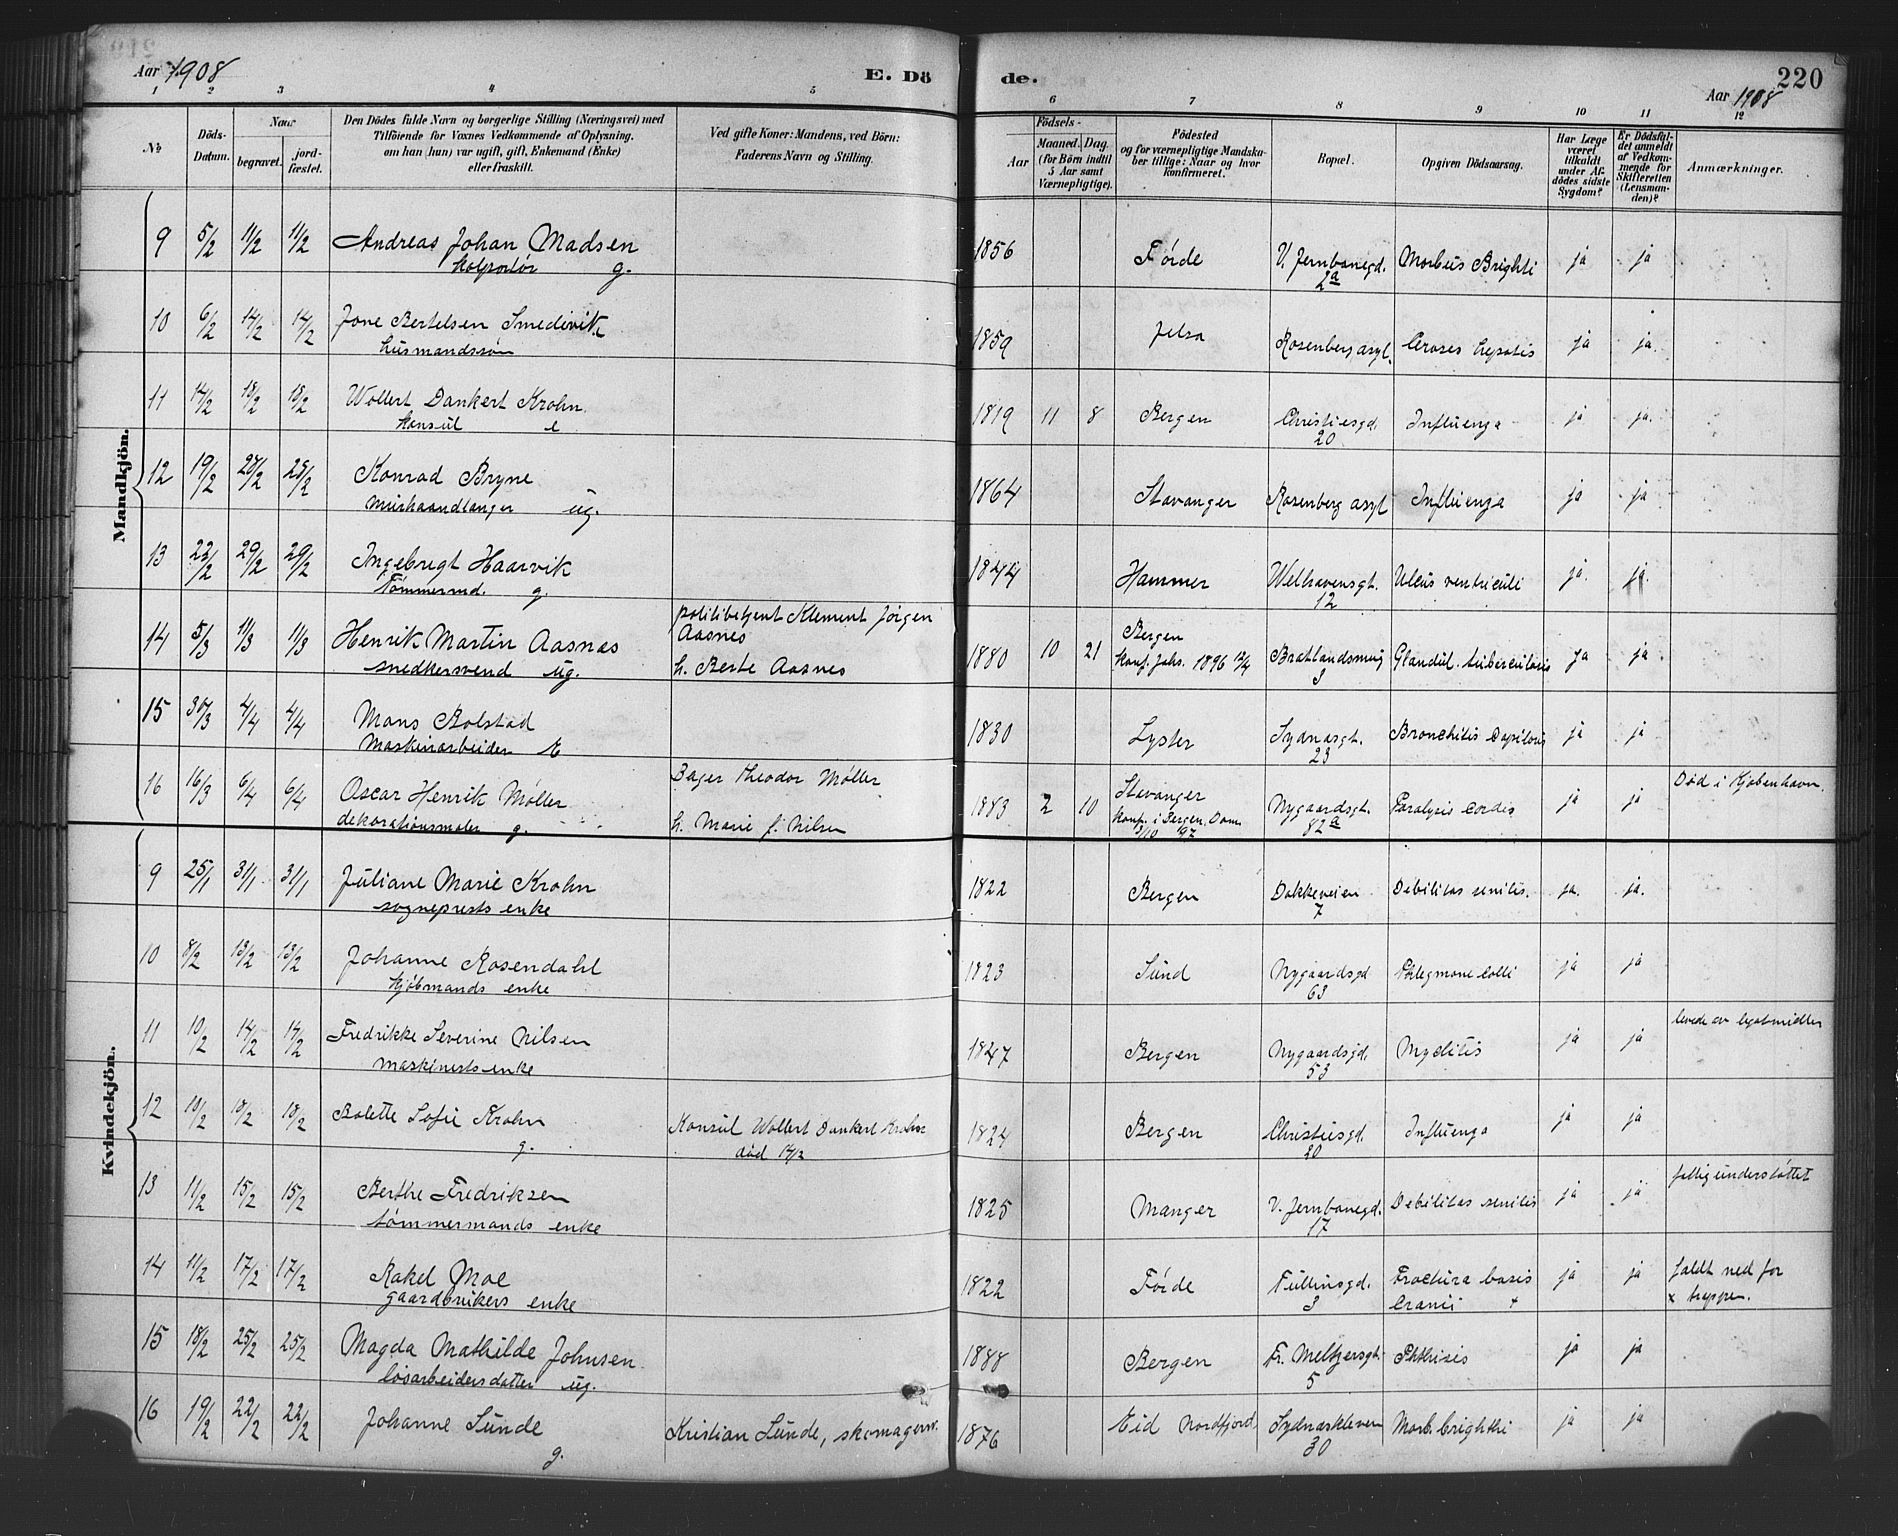 Aar 1908
E. Dö
de.
220
Aar 1908
1 2 3 4 5 6 7 8 9 10 11 12
№
Döds-Datum.
Naar
begravet.
jordfæstet.
Den Dödes fulde Navn og borgerlige Stilling (Næringsvei) med
Tilföiende for Voxnes Vedkommende af Oplysning,
om han (hun) var ugift, gift, Enkemand (Enke)
eller fraskilt.
Ved gifte Koner: Mandens, ved Börn:
Faderens Navn og Stilling.
Födsels-
Aar
Maaned. Dag.
(for Börn indtil
5 Aar samt
Værnepligtige).
Födested
og for værnepligtige Mandskaber tillige: Naar og hvor
konfirmeret.
Bopæl.
Opgiven Dödsaarsag.
Har Læge
været
tilkaldt
under Afdödes sidste
Sygdom?
Er Dödsfaldet anmeldt
af Vedkommende for
Skifteretten
(Lensmanden)?
Anmærkninger.
Mandkjön.
9 5/2 11/2 11/2 Andreas Johan Madsen 1856 Førde V. Jernbanegd. Morbus Brighti ja ja
kolportør g. 2a
10 6/2 14/2 14/2 Jone Bertelsen Smedevik 1859 Jelsa Rosenberg asyl. Ciroses hepatis ja ja.
husmandssøn
11 14/2 18/2 18/2 Wollert Dankert Krohn. 1819 11 8 Bergen Christiesgd. Influenza ja ja.
konsul e 20
12 19/2 25/2 25/2 Konrad Bryne 1864 Stavanger Rosenberg asyl Influenza ja ja
murhaandlanger ug.
13 22/2 29/2 29/2 Ingebregt Haarvik 1844 Hammer Welhavensgt. Ulcus ventriculi ja. ja.
Tømmermd. g. 12
14 5/3 11/3 11/3 Henrik Martin Aasnæs politibetjent Klement Jørgen Aasnes 1880 10 21 Bergen Bratlandsmug Glandul. tuberculosis ja ja
snedkersvend ug. h. Berte Aasnes konf. Johs. 1896 12/4 3
15 30/3 4/4 4/4 Mons Bolstad 1830 Lyster Sydnæsgt. Bronchitis Capilaris ja ja
Maskinarbeider E 23
16 16/3 6/4 6/4 Oscar Henrik Møller Bager Theodor Møller 1883 2 10 Stavanger Nygaardsgt. Paralysis cordis ja ja Død i Kjøbenhavn.
dekorationsmaler g. h. Marie f. Nilsen konf. i Bergen, Dom. 3/10 97 82a
Kvindekjön.
9 25/1 31/1 31/1 Juliane Marie Krohn 1822 Bergen Dokkeveien Debilitas senilis. ja. ja.
sogneprests enke 7
10 8/2 13/2 13/2 Johanne Rosendahl 1823 Sund Nygaardsgd Phlegmone colli ja ja
kjøbmands enke 63
11 10/2 14/2 14/2 Fredrikke Severine Nilsen 1847 Bergen Nygaardsgd. Myelitis ja ja levede av legatmidler
maskinists enke 53
12 10/2 18/2 18/2 Bolette Sofie Krohn Konsul Wollert Dankert Krohn 1824 Bergen Christiesgd. Influenza ja ja
g. død 14/2 20
13 11/2 15/2 15/2 Berthe Fredriksen 1825 Manger V. Jernbanegd. Debilitas senilis ja ja fattigunderstøttet
tømmermands enke 17
14 11/2 17/2 17/2 Rakel Moe 1822 Førde Fullinsgd. Fractura basis ja ja faldt ned for
gaardbrukers enke 3 Cranii + x trappen.
15 18/2 25/2 25/2 Magda Mathilde Johnsen 1888 Bergen Fr. Meltzersgt. Phthisis ja ja
løsarbeidersdatter ug. 5
16 19/2 22/2 22/2 Johanne Sunde Kristian Sunde, skomagersv. 1876 Eid Nordfjord Sydnæskleven Morb. brighthi ja ja
g. 30